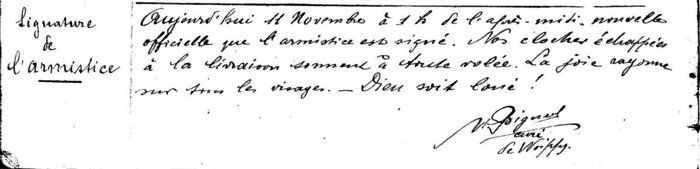 Signature
de
l'armistice
Aujourd'hui 11 Novembre à 1 h de l'après-midi nouvelle
officielle que l'armistice est signé. Nos cloches échappées
à la livraison sonnent à toute volée. La joie rayonne
sur tous les visages. — Dieu soit loué !
curé
de Woippy.